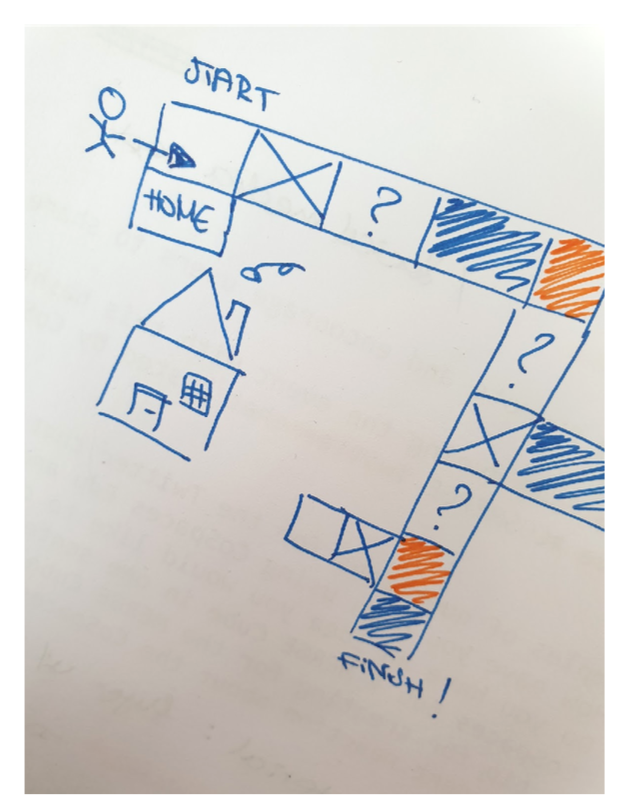 START
?
HOME
?
?
FiNiSH!